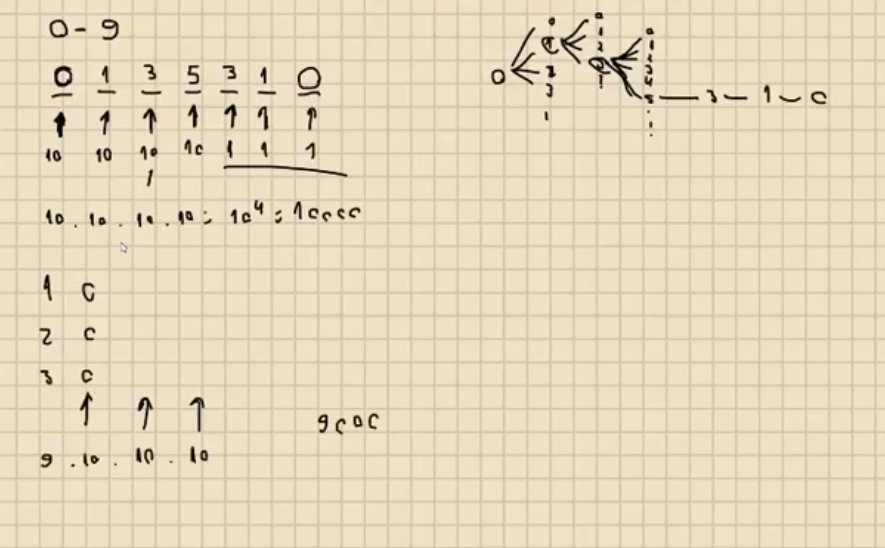 0 - 9
0 1 3 5 3 1 0
10 10 10 10 1 1 1
1
10 . 10 . 10 . 10 = 10⁴ = 10000
1 0
2 0
3 0
9000
9 . 10 . 10 . 10
0
5 — 3 — 1 — 0